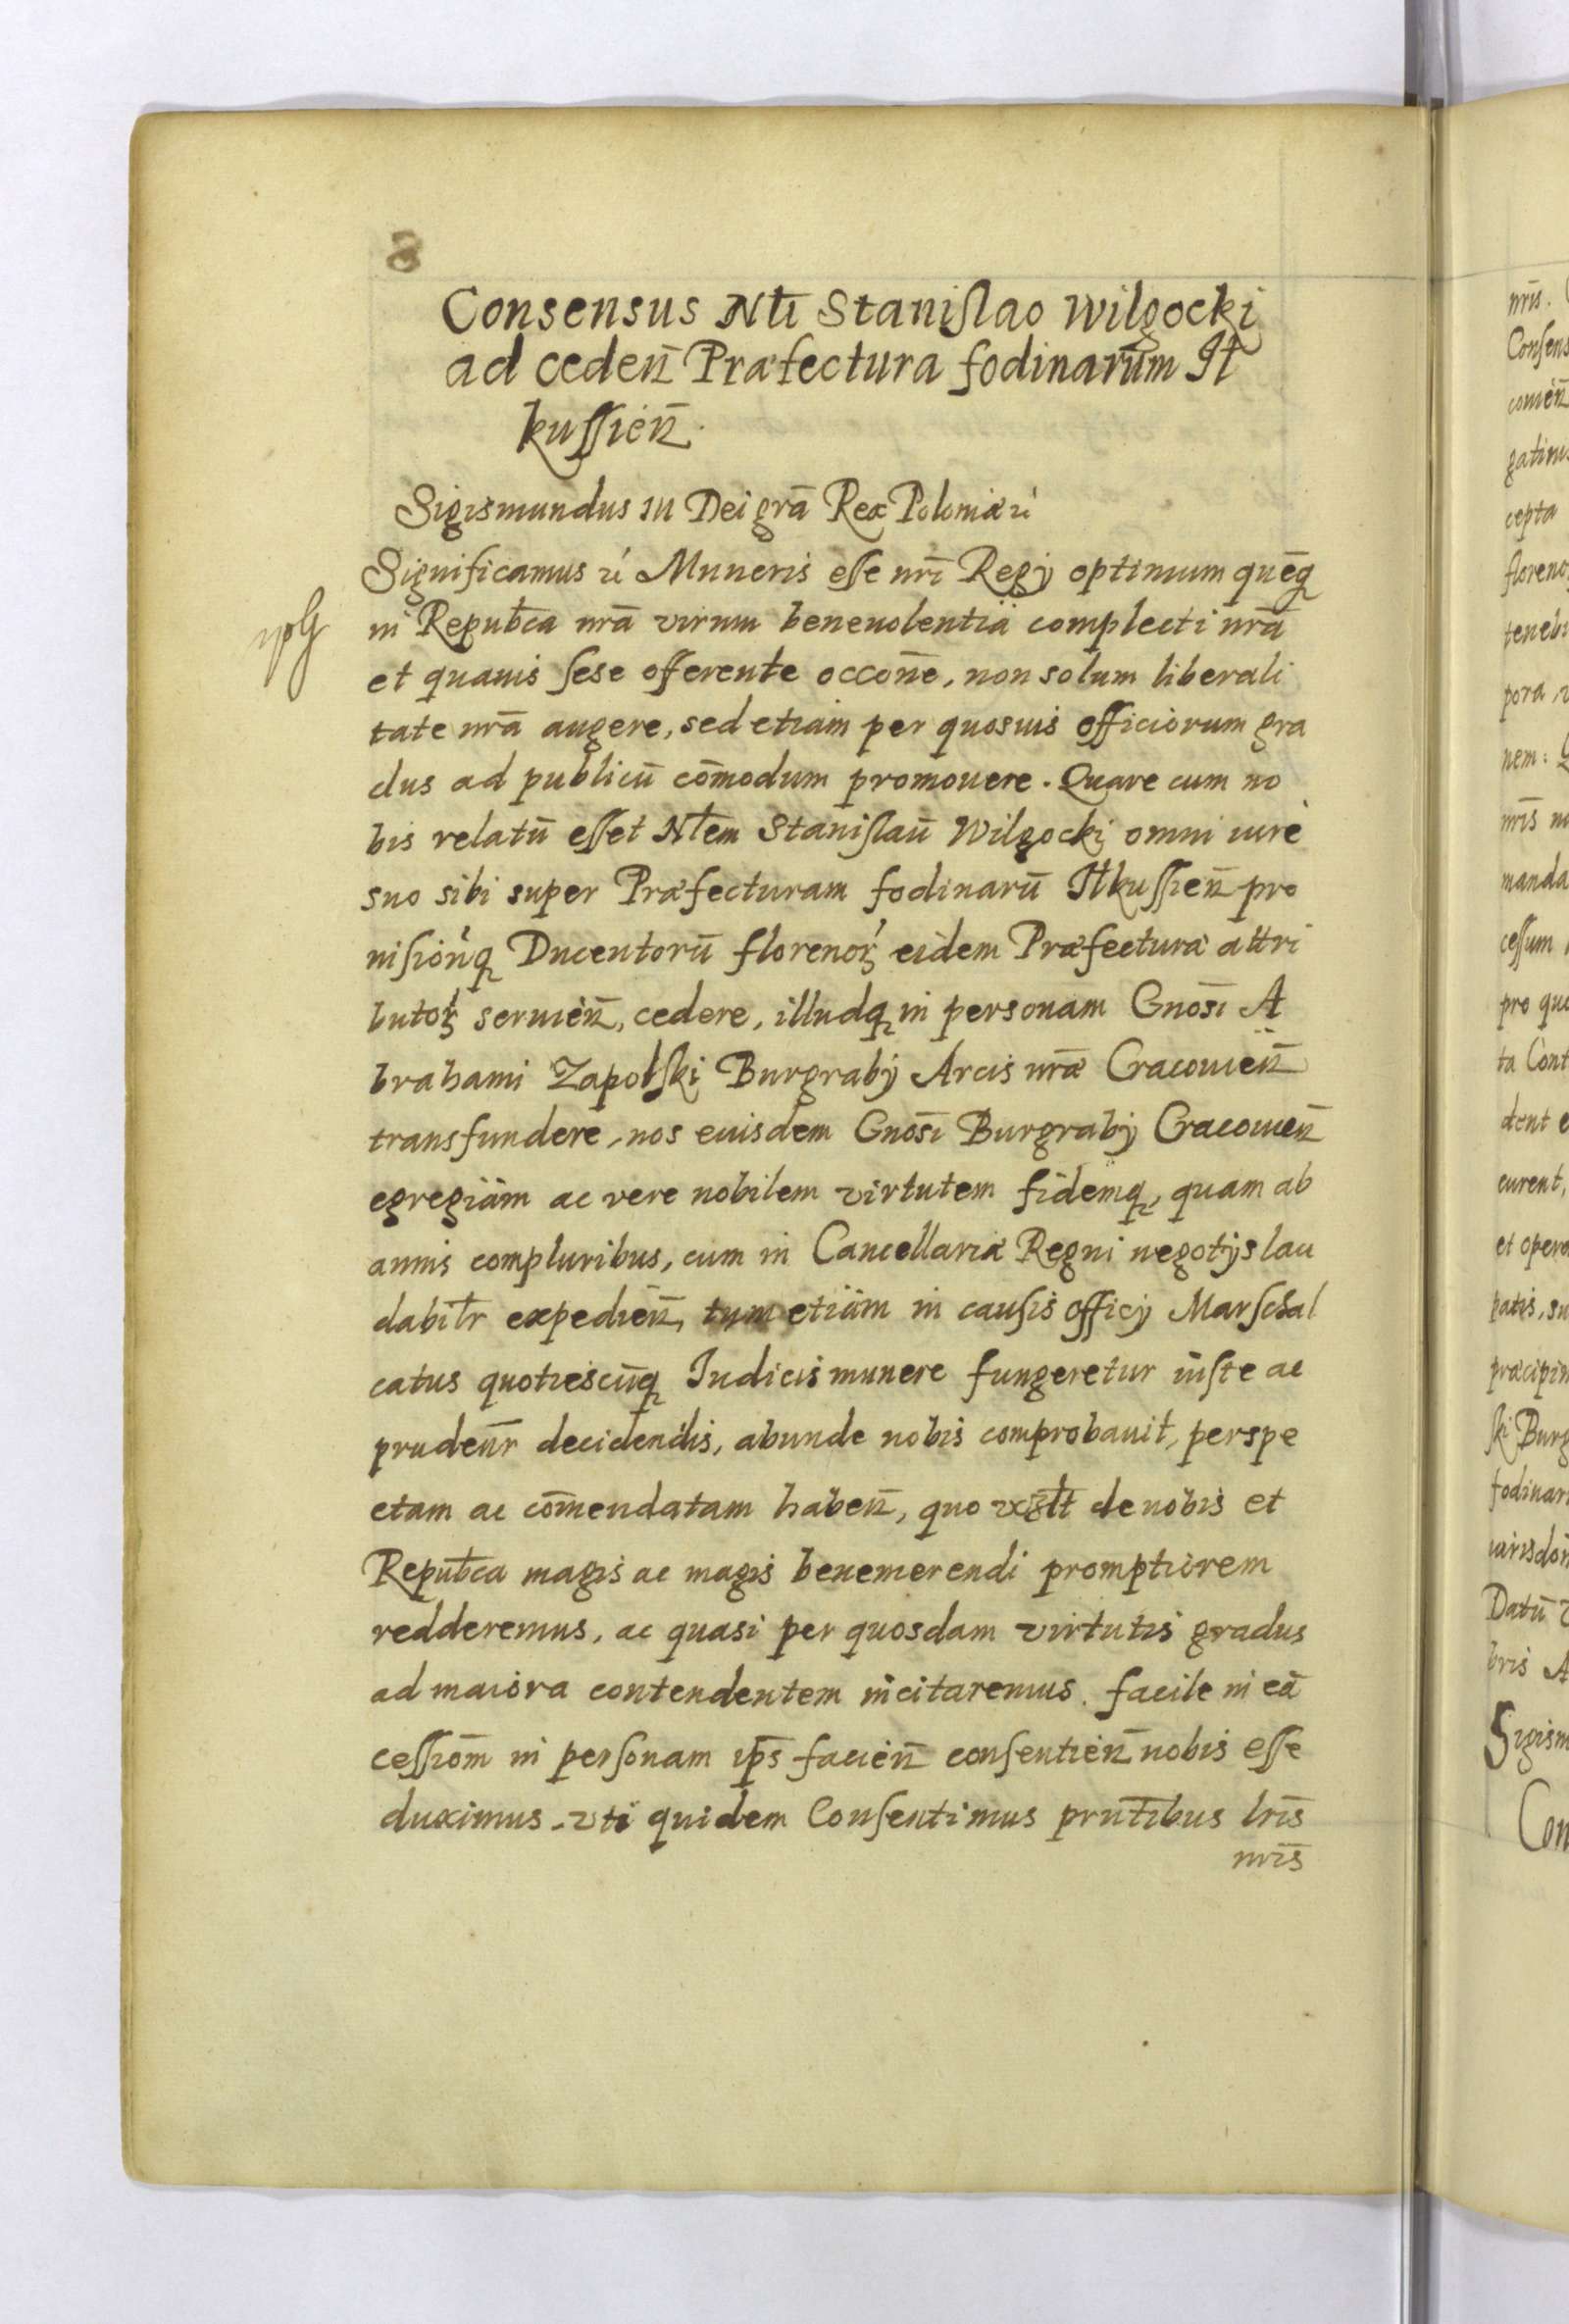 8
Consensus Nłi Staniſlao Wilgocki
ad ceden̄ Præfectura fodinarum Ił
kuſſien̄.
Sigismundus III Dei grā Rex Poloniæ
Significamus Muneris eſse nrī Regÿ optimum quēq
in Repubłca nrā virum beneuolentia complecti nrā
et quauis ſese offerente occone, non solum liberali
tate nrā augere, sed etiam per quosuis officiorum gra
dus ad publicū cōmodum promouere. Quare cum no
bis relatū eſset Nłem Staniſlaū Wilgocki omni iure
suo sibi super Præfecturam fodinarū Iłkuſſien̄ pro
uiſionq Ducentorū florenoꝝ eidem Præfecturæ attri
butoꝝ seruien̄, cedere, illudq in personam Gnosi A
brahami Zapolſki Burgrabÿ Arcis nræ Cracouien̄
transfundere, nos euisdem Gnosi Burgrabÿ Cracouien̄
egregiam ac vere nobilem virtutem fidemq, quam ab
annis compluribus, cum in Cancellariæ Regni negotÿs lau
dabiłr expedien̄, tum etiam in cauſis officÿ Marſchal
catus quotiescūq Iudicis munere fungeretur iuſte ac
prudenr decidendis, abunde nobis comprobauit, perspe
ctam ac cōmendatam haben̄, quo de nobis et
Repubłca magis ac magis benemerendi promptiorem
redderemus, ac quasi per quosdam virtutis gradus
ad maiora contendentem incitaremus. facile in eā
ceſſiom in perſonam ips facien̄ conſentien̄ nobis eſse
duximus. vti quidem Conſentimus prntibus lris
nris
nris.
Conſens
gatinu
cepta
floreno
tenebi
nem:
manda
ceſſum
pro qu
ta Cont
dent e
curent,
et opera
præcipim
ſki Burg
fodinar
Datū
bris A
Sigism
Con